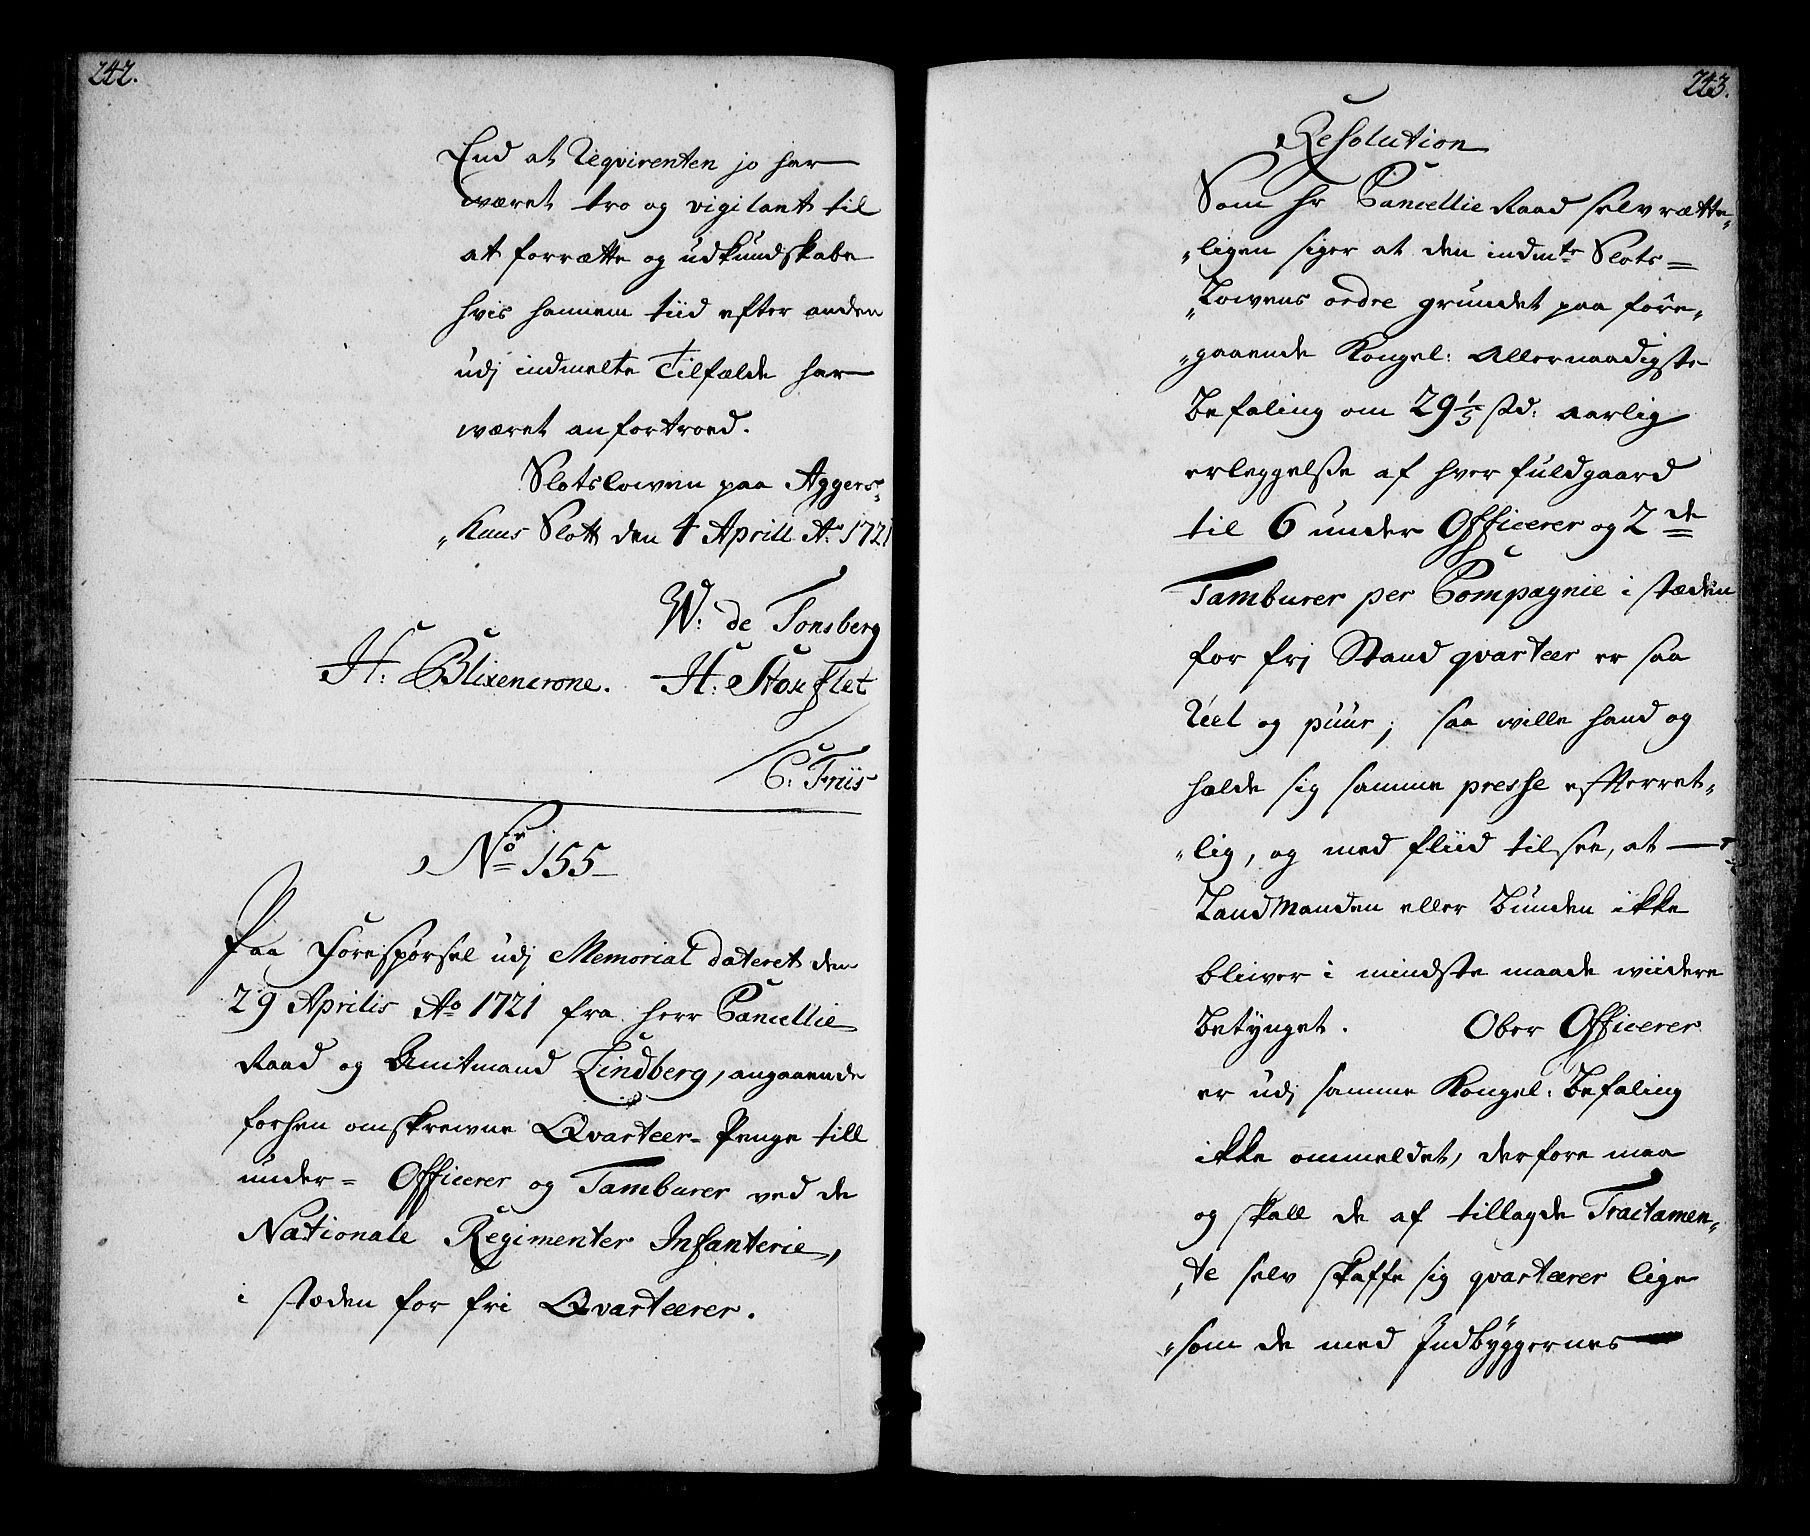 242.
End at Reqvirenten jo har
været tro og vigilant til
at forrætte og udkundskabe
hvis hannem tiid efter anden
udj indmelte Tilfælde har
været anfortroed.
Slotsloven paa Aggers„
„Huus Slott den 4 Aprill Ao 1721
W: de Tonsberg
H: Blixencrone. H: Stouflet
C: Friis
No 155
Paa Forespørsel udj Memorial dateret den
29 Aprilis Ao 1721 fra herr Cancellie
Raad og Amtmand Lindberg, angaaende
forhen omskrewne Qvarteer-Penge till
under= Officerer og Tamburer ved de
Nationale Regimenter Infanterie,
i stæden for fri Qvarteerer.
243.
Resolution
Som Hr Cancellie Raad selv rætte„
„ligen siger at den indmte Slots=
„Lowens ordre grundet paa føre„
„gaaende Kongel: Allernaadigste
Befaling om 29 1/3 sk: aarlig
erleggelse af hver fuldgaard
til 6 under Officerer og 2de
Tamburer per Compagnie i stæden
for frj Stand qvarteer er saa
Reel og puur; saa wille hand og
holde sig samme presse efterret„
„lig, og med fliid tilsee, at
Landmanden eller Bunden ikke
bliwer i mindste maade wiidere
Betynget. Ober Officerer
er udj samme Kongel: Befaling
ikke ommeldet, derfore maa
og skall de af tillagde Tractamen„
„te selv skaffe sig qvarteerer lige
„som de med Indbyggernes